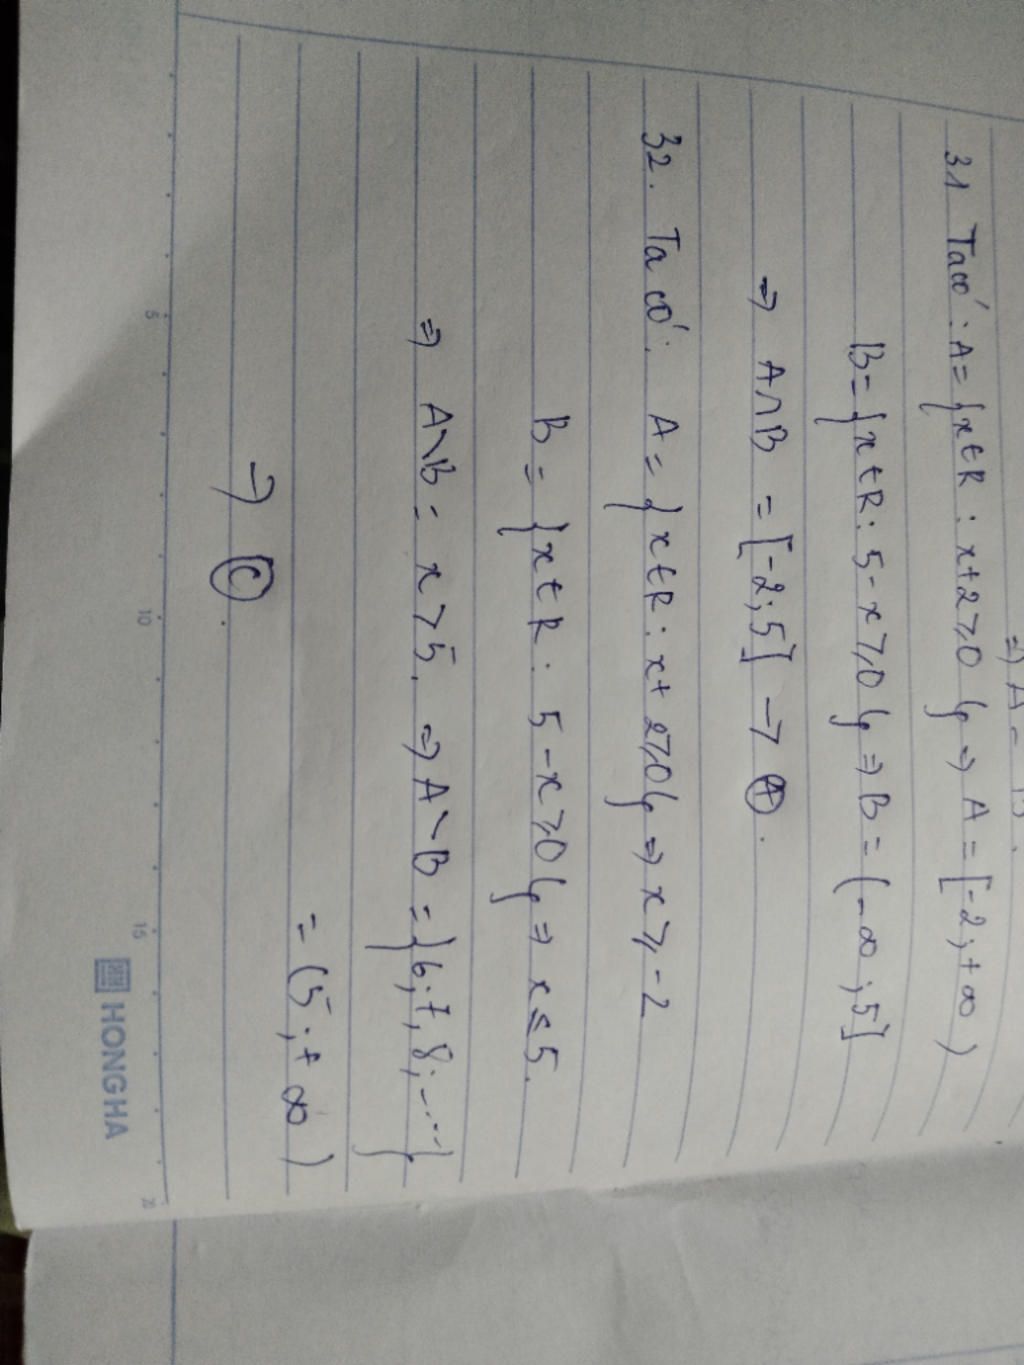 ⇒ A =
31 Ta có: A = {x ∈ R : x+2 ≥ 0} ⇒ A = [-2; +∞)
B = {x ∈ R : 5-x ≥ 0} ⇒ B = (-∞; 5]
⇒ A∩B = [-2; 5] → Ⓐ.
32. Ta có: A = {x ∈ R : x+2 ≥ 0} ⇒ x ≥ -2
B = {x ∈ R : 5-x ≥ 0} ⇒ x ≤ 5.
⇒ A\B = x > 5. ⇒ A\B = {6; 7, 8; ....}
= (5; +∞)
→ Ⓒ.
5 10 15 20
HONG HA